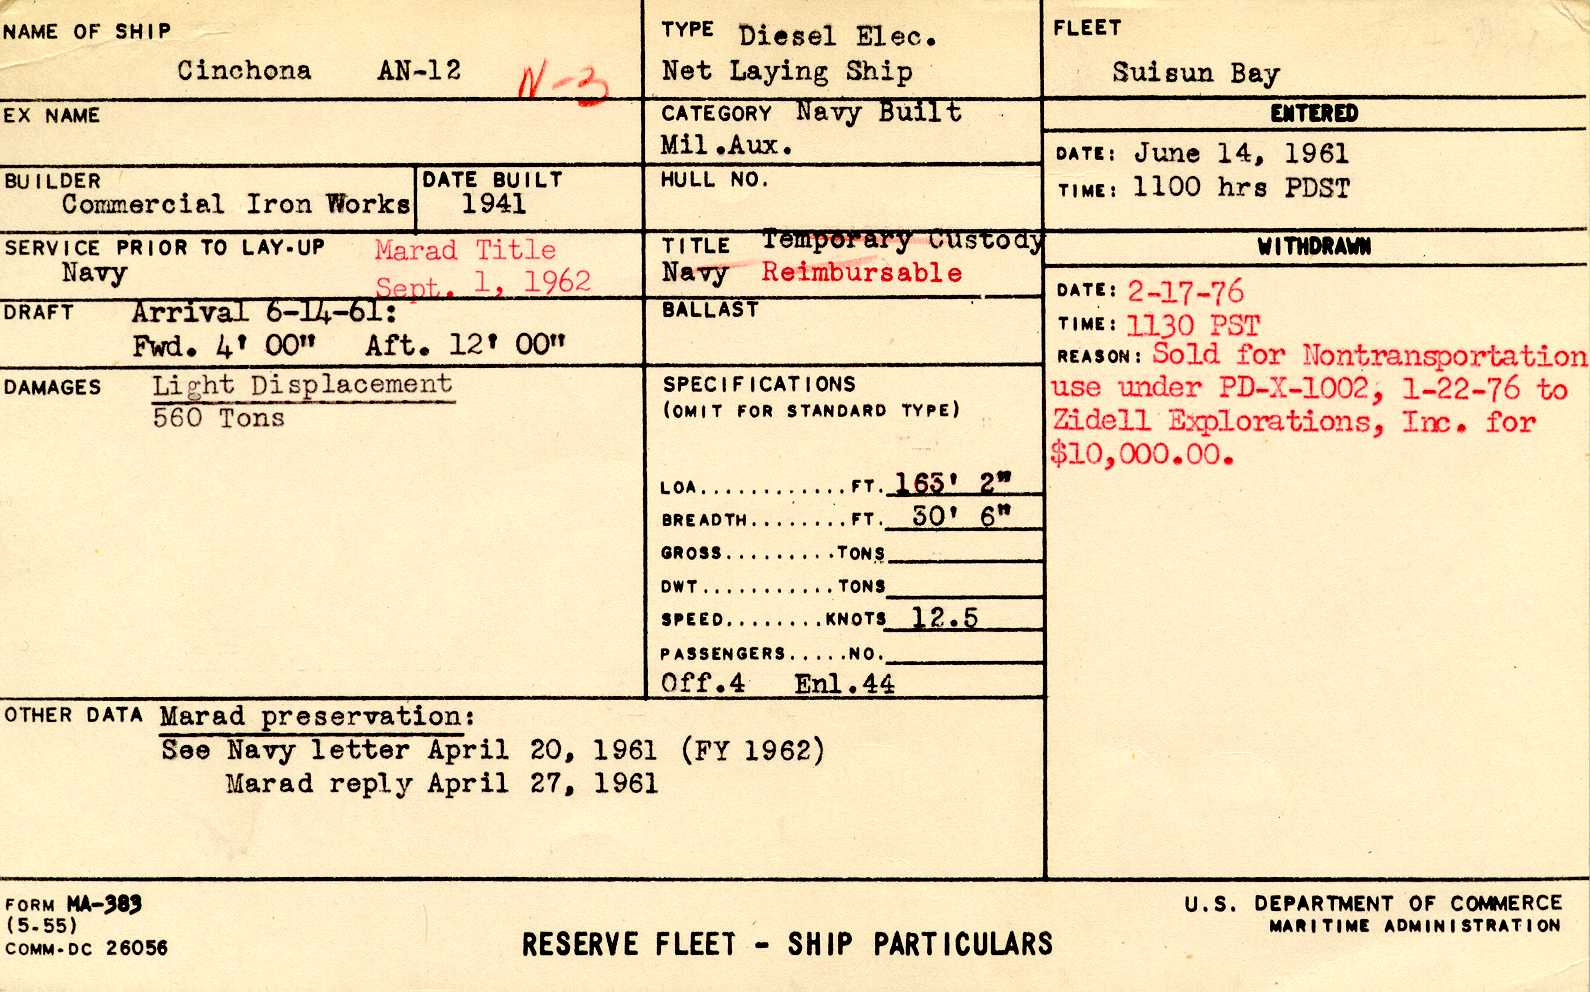 NAME OF SHIP
Cinchona AN-12 N-3
EX NAME
BUILDER
Commercial Iron Works
DATE BUILT
1941
SERVICE PRIOR TO LAY-UP Marad Title
Navy Sept. 1, 1962
DRAFT Arrival 6-14-61:
Fwd. 4' 00" Aft. 12' 00"
DAMAGES Light Displacement
560 Tons
TYPE Diesel Elec.
Net Laying Ship
CATEGORY Navy Built
Mil.Aux.
HULL NO.
TITLE Temporary Custody
Navy Reimbursable
BALLAST
SPECIFICATIONS
(OMIT FOR STANDARD TYPE)
LOA............FT. 163' 2"
BREADTH........FT. 30' 6"
GROSS..........TONS
DWT............TONS
SPEED........KNOTS 12.5
PASSENGERS.....NO.
Off.4 Enl.44
FLEET
Suisun Bay
ENTERED
DATE: June 14, 1961
TIME: 1100 hrs PDST
WITHDRAWN
DATE: 2-17-76
TIME: 1130 PST
REASON: Sold for Nontransportation
use under PD-X-1002, 1-22-76 to
Zidell Explorations, Inc. for
$10,000.00.
OTHER DATA Marad preservation:
See Navy letter April 20, 1961 (FY 1962)
Marad reply April 27, 1961
FORM MA-383
(5-55)
COMM-DC 26056
RESERVE FLEET - SHIP PARTICULARS
U.S. DEPARTMENT OF COMMERCE
MARITIME ADMINISTRATION